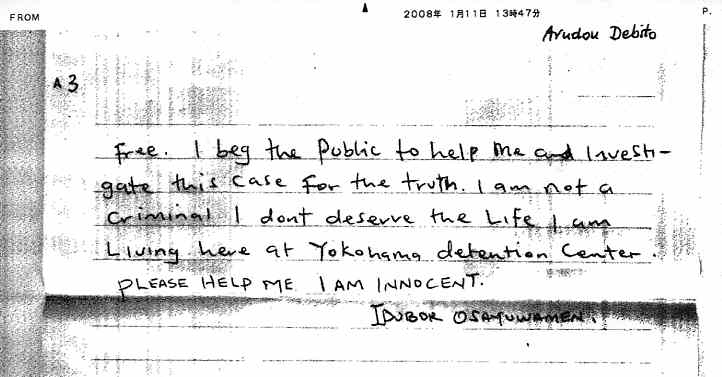 FROM
2008年 1月11日 13時47分
P.
Arudou Debito
A3
free. I beg the Public to help me and Investi-
gate this case for the truth. I am not a
criminal I dont deserve the Life I am
Living here at Yokohama detention Center.
PLEASE HELP ME I AM INNOCENT.
IDUBOR OSAYUWAMEN.